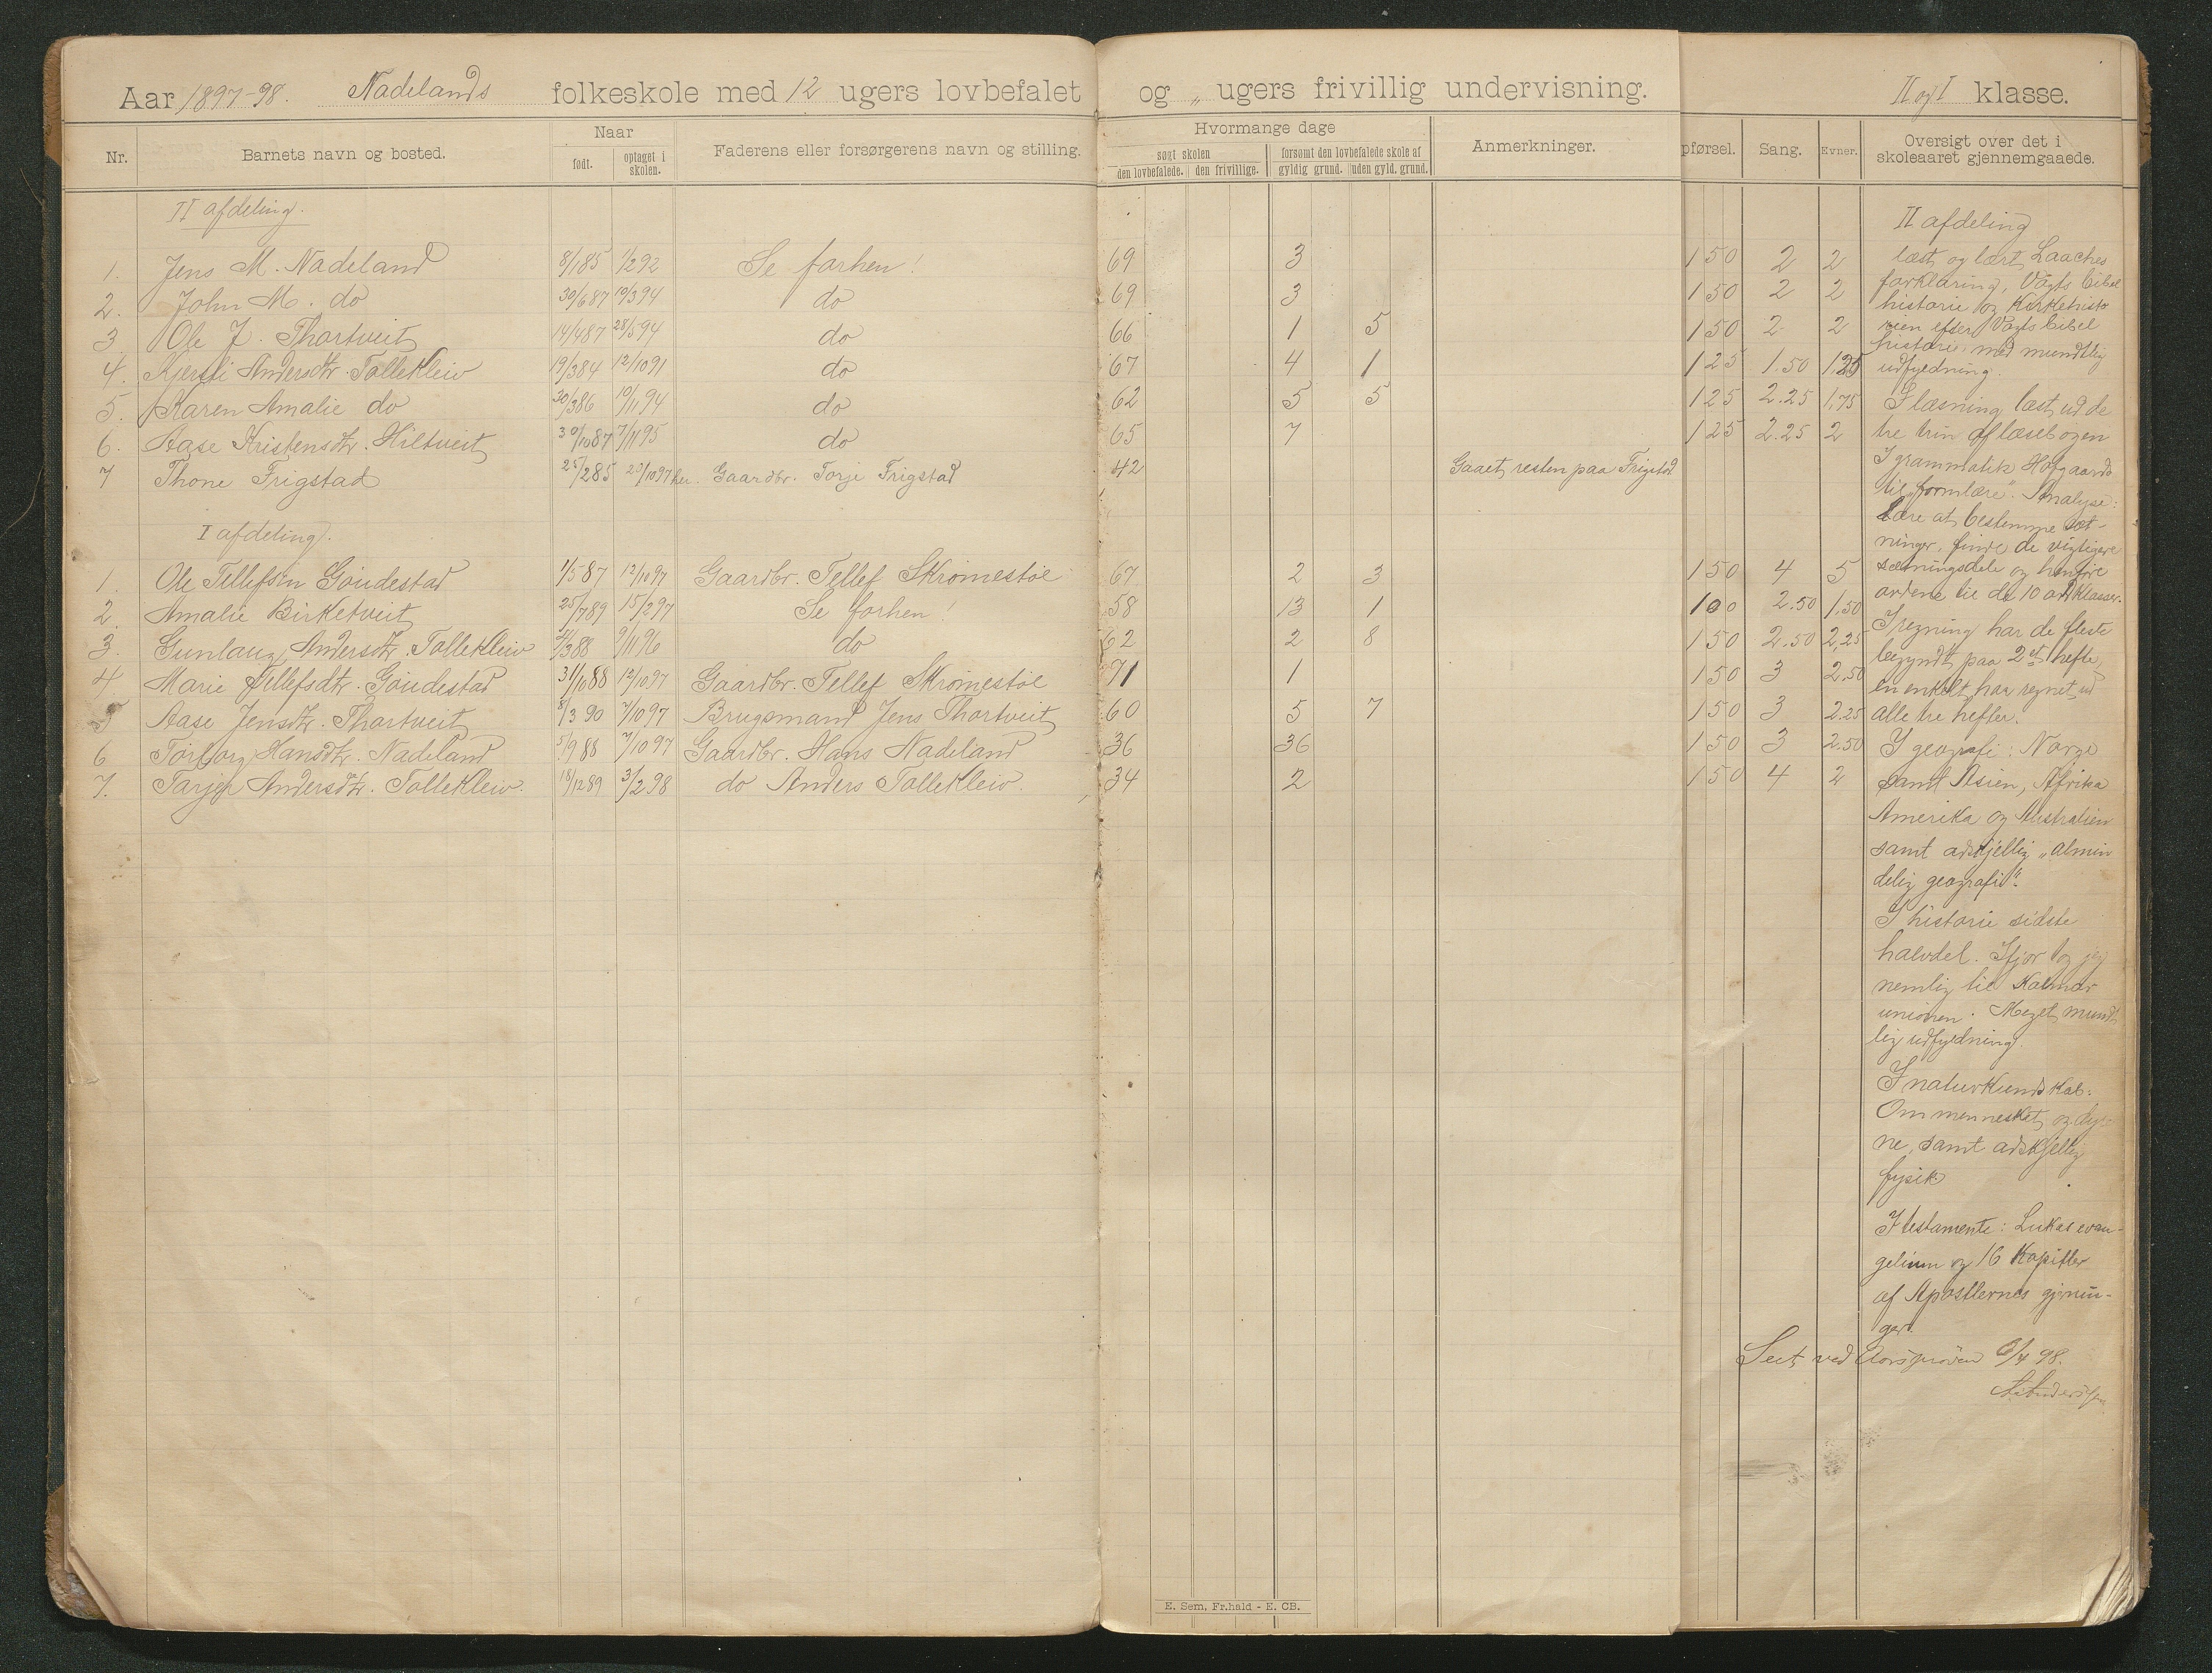 Aar 1897-98. Nadelands folkeskole med 12 ugers lovbefalet og „ ugers frivillig undervisning. II og I klasse.
Nr. Barnets navn og bosted. Naar født. optaget i skolen. Faderens eller forsørgerens navn og stilling. Hvormange dage søgt skolen den lovbefalede. den frivillige. forsømt den lovbefalede skole af gyldig grund. uden gyld. grund. Anmerkninger. pførsel. Sang. Evner. Oversigt over det i skoleaaret gjennemgaaede.
II afdeling.
1. Jens M. Nadeland 8/1 85 1/2 92 Se forhen! 69 3 1 50 2 2
2. John M. do 30/6 87 10/3 94 do 69 3 1 50 2 2
3 Ole J. Thortveit 14/4 87 28/5 94 do 66 1 5 1 50 2 2
4. Kjersti Andersdtr. Tollekleiv 19/3 84 12/10 91 do 67 4 1 1 25 1.50 1.25
5. Karen Amalie do 30/3 86 10/11 94 do 62 5 5 1 25 2.25 1.75
6. Aase Kristensdtr. Hiltveit 30/10 87 7/11 95 do 65 7 1 25 2.25 2
7 Thone Frigstad 25/2 85 20/10 97 her. Gaardbr. Torje Frigstad 42 Gaaet resten paa Frigstad
I afdeling.
1. Ole Tellefsen Göudestad 1/5 87 12/10 97 Gaardbr. Tellef Skromestöl 67 2 3 1 50 4 5
2. Amalie Birketveit 25/7 89 15/2 97 Se forhen! 58 13 1 1 00 2.50 1.50
3. Gunlaug Andersdtr. Tollekleiv /3 88 9/11 96 do 62 2 8 1 50 2.50 2.25
4. Marie Tellefsdtr. Göudestad 31/10 88 12/10 97 Gaardbr. Tellef Skromestöl 71 1 1 50 3 2.50
5 Aase Jensdtr. Thortveit 8/3 90 7/10 97 Brugsmand Jens Thortveit 60 5 7 1 50 3 2.25
6 Torborg Hansdtr. Nadeland 5/9 88 7/10 97 Gaardbr. Hans Nadeland 36 36 1 50 3 2.50
7. Tarjer Andersdtr. Tollekleiv. 18/12 89 3/2 98 do Anders Tollekleiv. 34 2 1 50 4 2
II afdeling
læst og lært Laaches
forklaring, Vogts bibel
historie og Kirkehisto
rien efter Vogts bibel
historie, med mundtlig
udfyldning.
I læsning læst ud de
tre trin af læsebogen
I grammatik Hofgaards
til „formlære". Analyse:
Lære at bestemme sæt-
ninger, finde de vigtigere
sætningsdele og henføre
ordene til de 10 ordklasser.
I regning har de fleste
begyndt paa 2et hefte,
en enkelt har regnet ud
alle tre hefter.
I geografi: Norge
samt Asien, Afrika
Amerika og Australien
samt adskjellig „almin
delig geografi".
I historie sidste
halvdel. Ifjor og
nemlig til Kalmar
unionen. Meget mundt
lig udfyldning.
I naturkundskab:
Om mennesket og dy-
ne, samt adskjellig
fysik
I testamente: Lukas evan-
gelium og 16 Kapitler
af Apostlernes gjernin-
ger.
Seet ved Aarsprøven 6/4 98.
E. Sem, Fr.hald - E. CB.